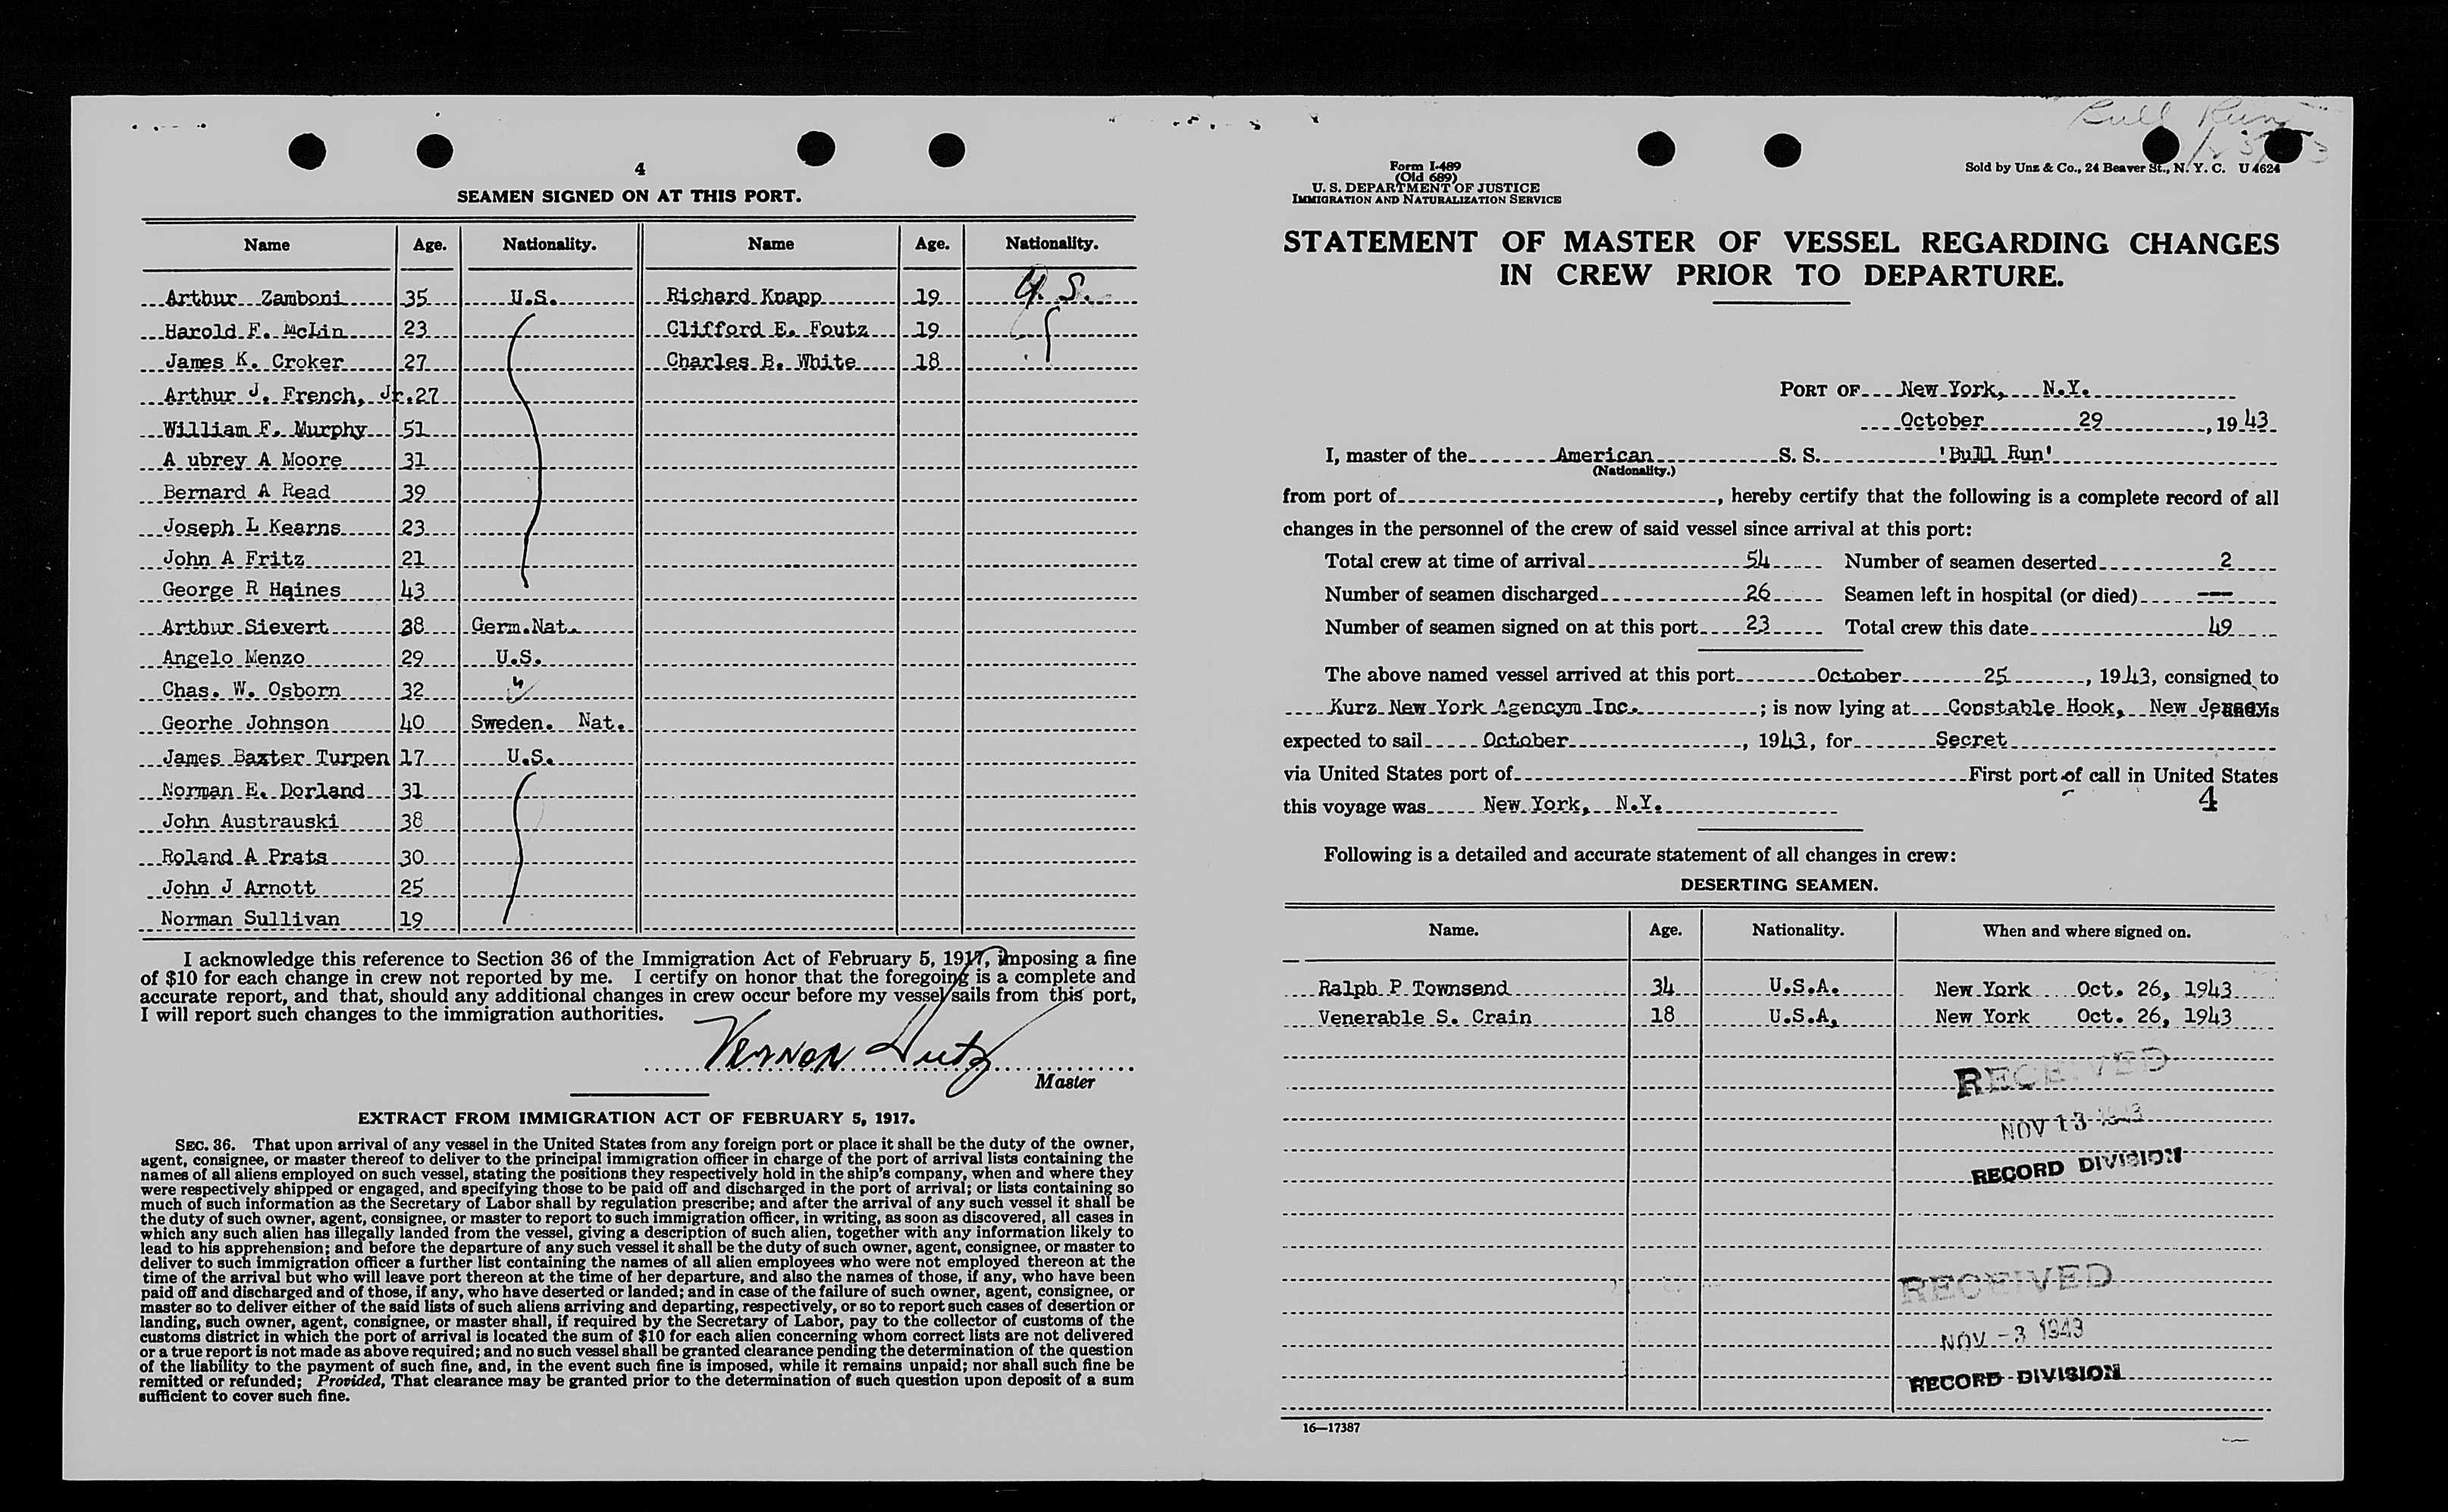 4
SEAMEN SIGNED ON AT THIS PORT.
Name Age. Nationality. Name Age. Nationality.
Arthur Zamboni 35 U.S. Richard Knapp 19 U.S.
Harold F. McLin 23 Clifford E. Foutz 19
James K. Croker 27 Charles B. White 18
Arthur J. French, Jr. 27
William F. Murphy 51
A ubrey A Moore 31
Bernard A Read 39
Joseph L Kearns 23
John A Fritz 21
George R Haines 43
Arthur Sievert 38 Germ.Nat.
Angelo Menzo 29 U.S.
Chas. W. Osborn 32 "
Georhe Johnson 40 Sweden. Nat.
James Baxter Turpen 17 U.S.
Norman E. Dorland 31
John Austrauski 38
Roland A Prats 30
John J Arnott 25
Norman Sullivan 19
I acknowledge this reference to Section 36 of the Immigration Act of February 5, 1917, imposing a fine
of $10 for each change in crew not reported by me. I certify on honor that the foregoing is a complete and
accurate report, and that, should any additional changes in crew occur before my vessel sails from this port,
I will report such changes to the immigration authorities.
Vernon
Master
EXTRACT FROM IMMIGRATION ACT OF FEBRUARY 5, 1917.
SEC. 36. That upon arrival of any vessel in the United States from any foreign port or place it shall be the duty of the owner,
agent, consignee, or master thereof to deliver to the principal immigration officer in charge of the port of arrival lists containing the
names of all aliens employed on such vessel, stating the positions they respectively hold in the ship's company, when and where they
were respectively shipped or engaged, and specifying those to be paid off and discharged in the port of arrival; or lists containing so
much of such information as the Secretary of Labor shall by regulation prescribe; and after the arrival of any such vessel it shall be
the duty of such owner, agent, consignee, or master to report to such immigration officer, in writing, as soon as discovered, all cases in
which any such alien has illegally landed from the vessel, giving a description of such alien, together with any information likely to
lead to his apprehension; and before the departure of any such vessel it shall be the duty of such owner, agent, consignee, or master to
deliver to such immigration officer a further list containing the names of all alien employees who were not employed thereon at the
time of the arrival but who will leave port thereon at the time of her departure, and also the names of those, if any, who have been
paid off and discharged and of those, if any, who have deserted or landed; and in case of the failure of such owner, agent, consignee, or
master so to deliver either of the said lists of such aliens arriving and departing, respectively, or so to report such cases of desertion or
landing, such owner, agent, consignee, or master shall, if required by the Secretary of Labor, pay to the collector of customs of the
customs district in which the port of arrival is located the sum of $10 for each alien concerning whom correct lists are not delivered
or a true report is not made as above required; and no such vessel shall be granted clearance pending the determination of the question
of the liability to the payment of such fine, and, in the event such fine is imposed, while it remains unpaid; nor shall such fine be
remitted or refunded; Provided, That clearance may be granted prior to the determination of such question upon deposit of a sum
sufficient to cover such fine.
Bull Run
Form I-489
(Old 689)
U. S. DEPARTMENT OF JUSTICE
IMMIGRATION AND NATURALIZATION SERVICE
Sold by Unz & Co., 24 Beaver St., N. Y. C. U 4624
STATEMENT OF MASTER OF VESSEL REGARDING CHANGES
IN CREW PRIOR TO DEPARTURE.
PORT OF New York, N.Y.
October 29, 1943
I, master of the American S. S. 'Bull Run'
(Nationality.)
from port of , hereby certify that the following is a complete record of all
changes in the personnel of the crew of said vessel since arrival at this port:
Total crew at time of arrival 54 Number of seamen deserted 2
Number of seamen discharged 26 Seamen left in hospital (or died) ---
Number of seamen signed on at this port 23 Total crew this date 49
The above named vessel arrived at this port October 25, 1943, consigned to
Kurz New York Agencym Inc. ; is now lying at Constable Hook, New Jersey, and is
expected to sail October , 1943, for Secret
via United States port of First port of call in United States
this voyage was New York, N.Y. 4
Following is a detailed and accurate statement of all changes in crew:
DESERTING SEAMEN.
Name. Age. Nationality. When and where signed on.
Ralph P Townsend 34 U.S.A. New York Oct. 26, 1943
Venerable S. Crain 18 U.S.A. New York Oct. 26, 1943
RECEIVED
NOV 13 1943
RECORD DIVISION
RECEIVED
NOV -3 1943
RECORD DIVISION
16—17387